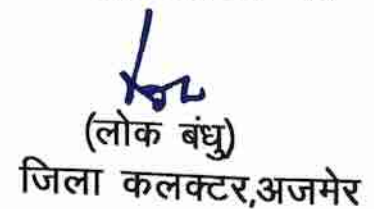 (लोक बंधु)
जिला कलक्टर,अजमेर